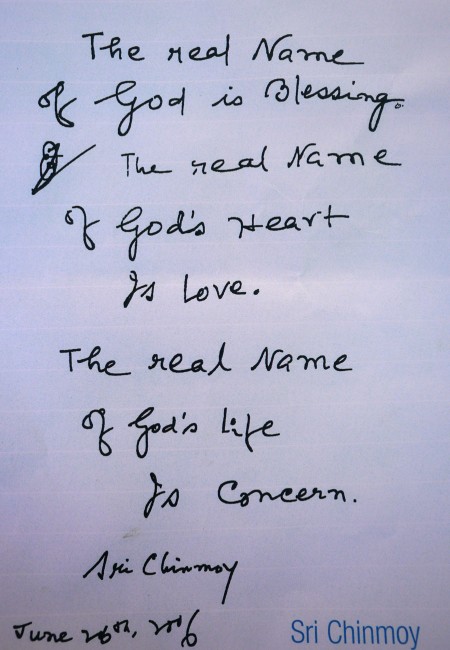 The real Name
Of God is Blessing.
The real Name
Of God's Heart
Is Love.
The real Name
Of God's Life
Is Concern.
Sri Chinmoy
June 26th, 2006
Sri Chinmoy